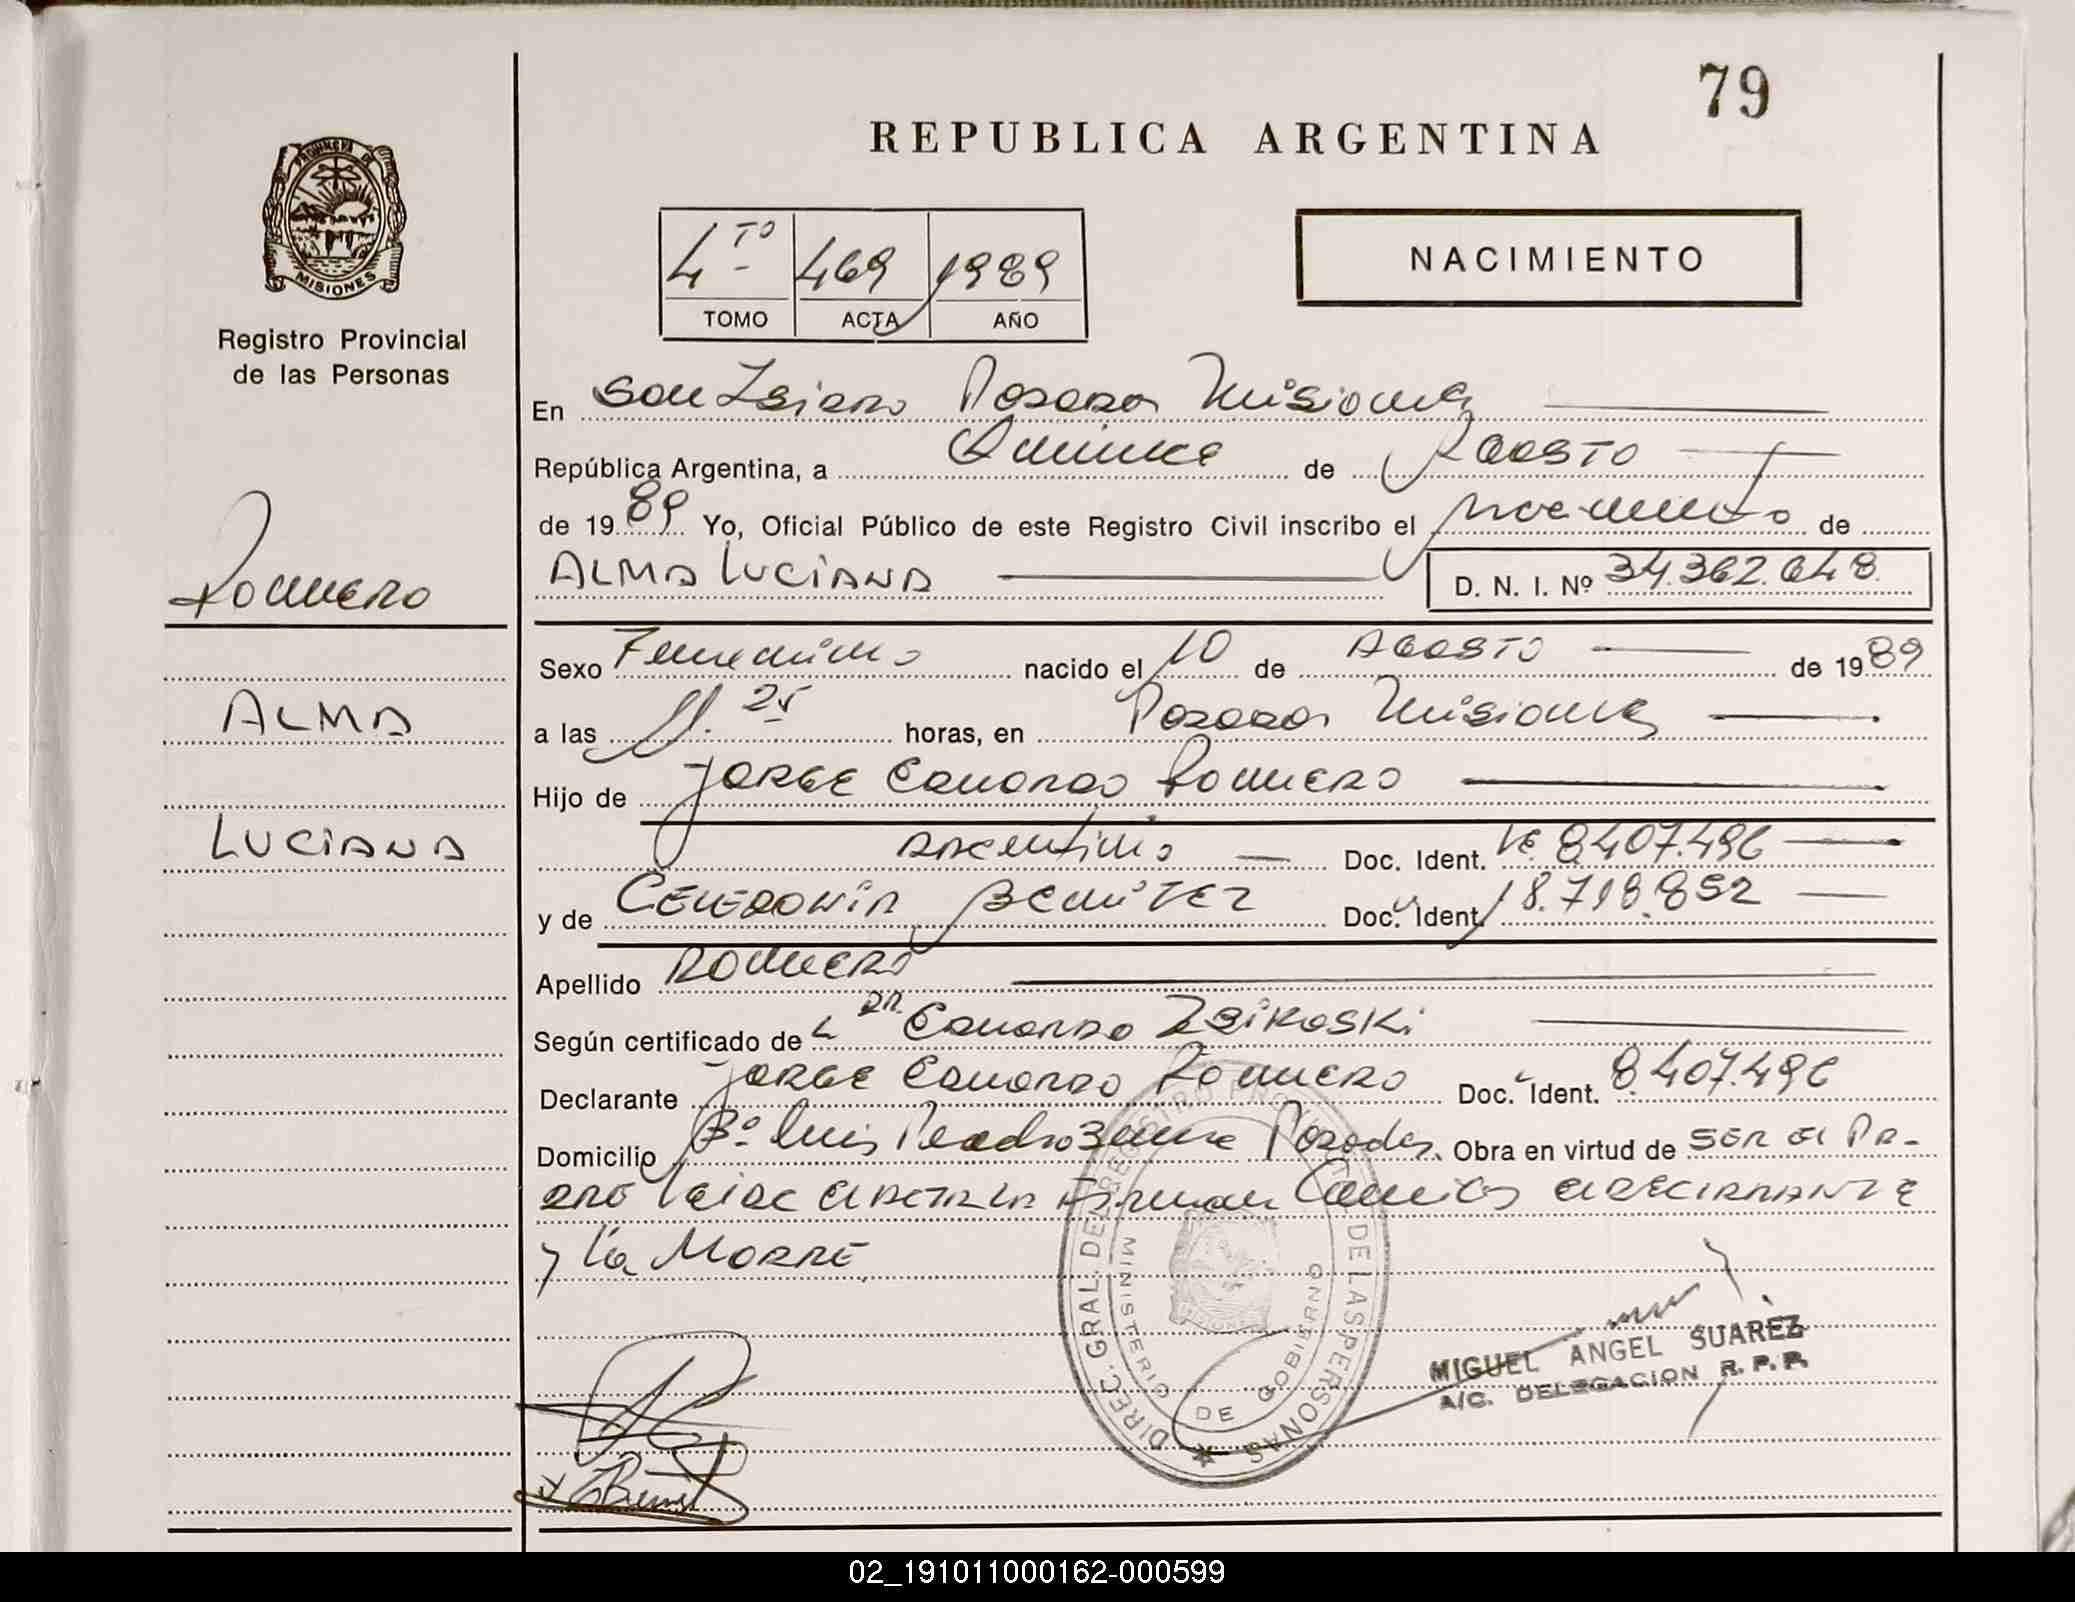 79
REPUBLICA ARGENTINA
PROVINCIA DE
MISIONES
Registro Provincial
de las Personas
4TO 469 1989
TOMO ACTA AÑO
NACIMIENTO
En San Isidro Posadas Misiones
República Argentina, a Quince de Agosto
de 1989 Yo, Oficial Público de este Registro Civil inscribo el nacimiento de
ALMA LUCIANA D. N. I. Nº 34.362.048
Romero
ALMA
LUCIANA
Sexo Femenino nacido el 10 de AGOSTO de 1989
a las 11.25 horas, en Posadas Misiones
Hijo de Jorge Eduardo Romero
Argentino Doc. Ident. 8407.496
y de Celedonia Benitez Doc. Ident. 18.718.852
Apellido Romero
Según certificado de Dr. Eduardo
Declarante Jorge Eduardo Romero Doc. Ident. 8407.496
Domicilio Bº Luis Posadas. Obra en virtud de SER EL PA-
DRE Leida el Acta la Firman el declarante
y la Madre
DIREC. GRAL. DE REGISTRO PROV. DE LAS PERSONAS
MINISTERIO DE GOBIERNO
MIGUEL ANGEL SUAREZ
A/C. DELEGACION R. P. P.
02_191011000162-000599